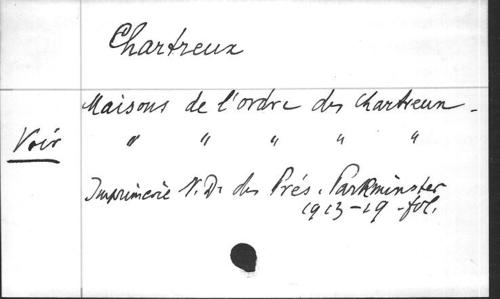 Chartreux
Maisons de l'ordre des Chartreux -
Voir " " " " "
Imprimerie N. D. des Prés. Parkminster
1913-19 - fol.